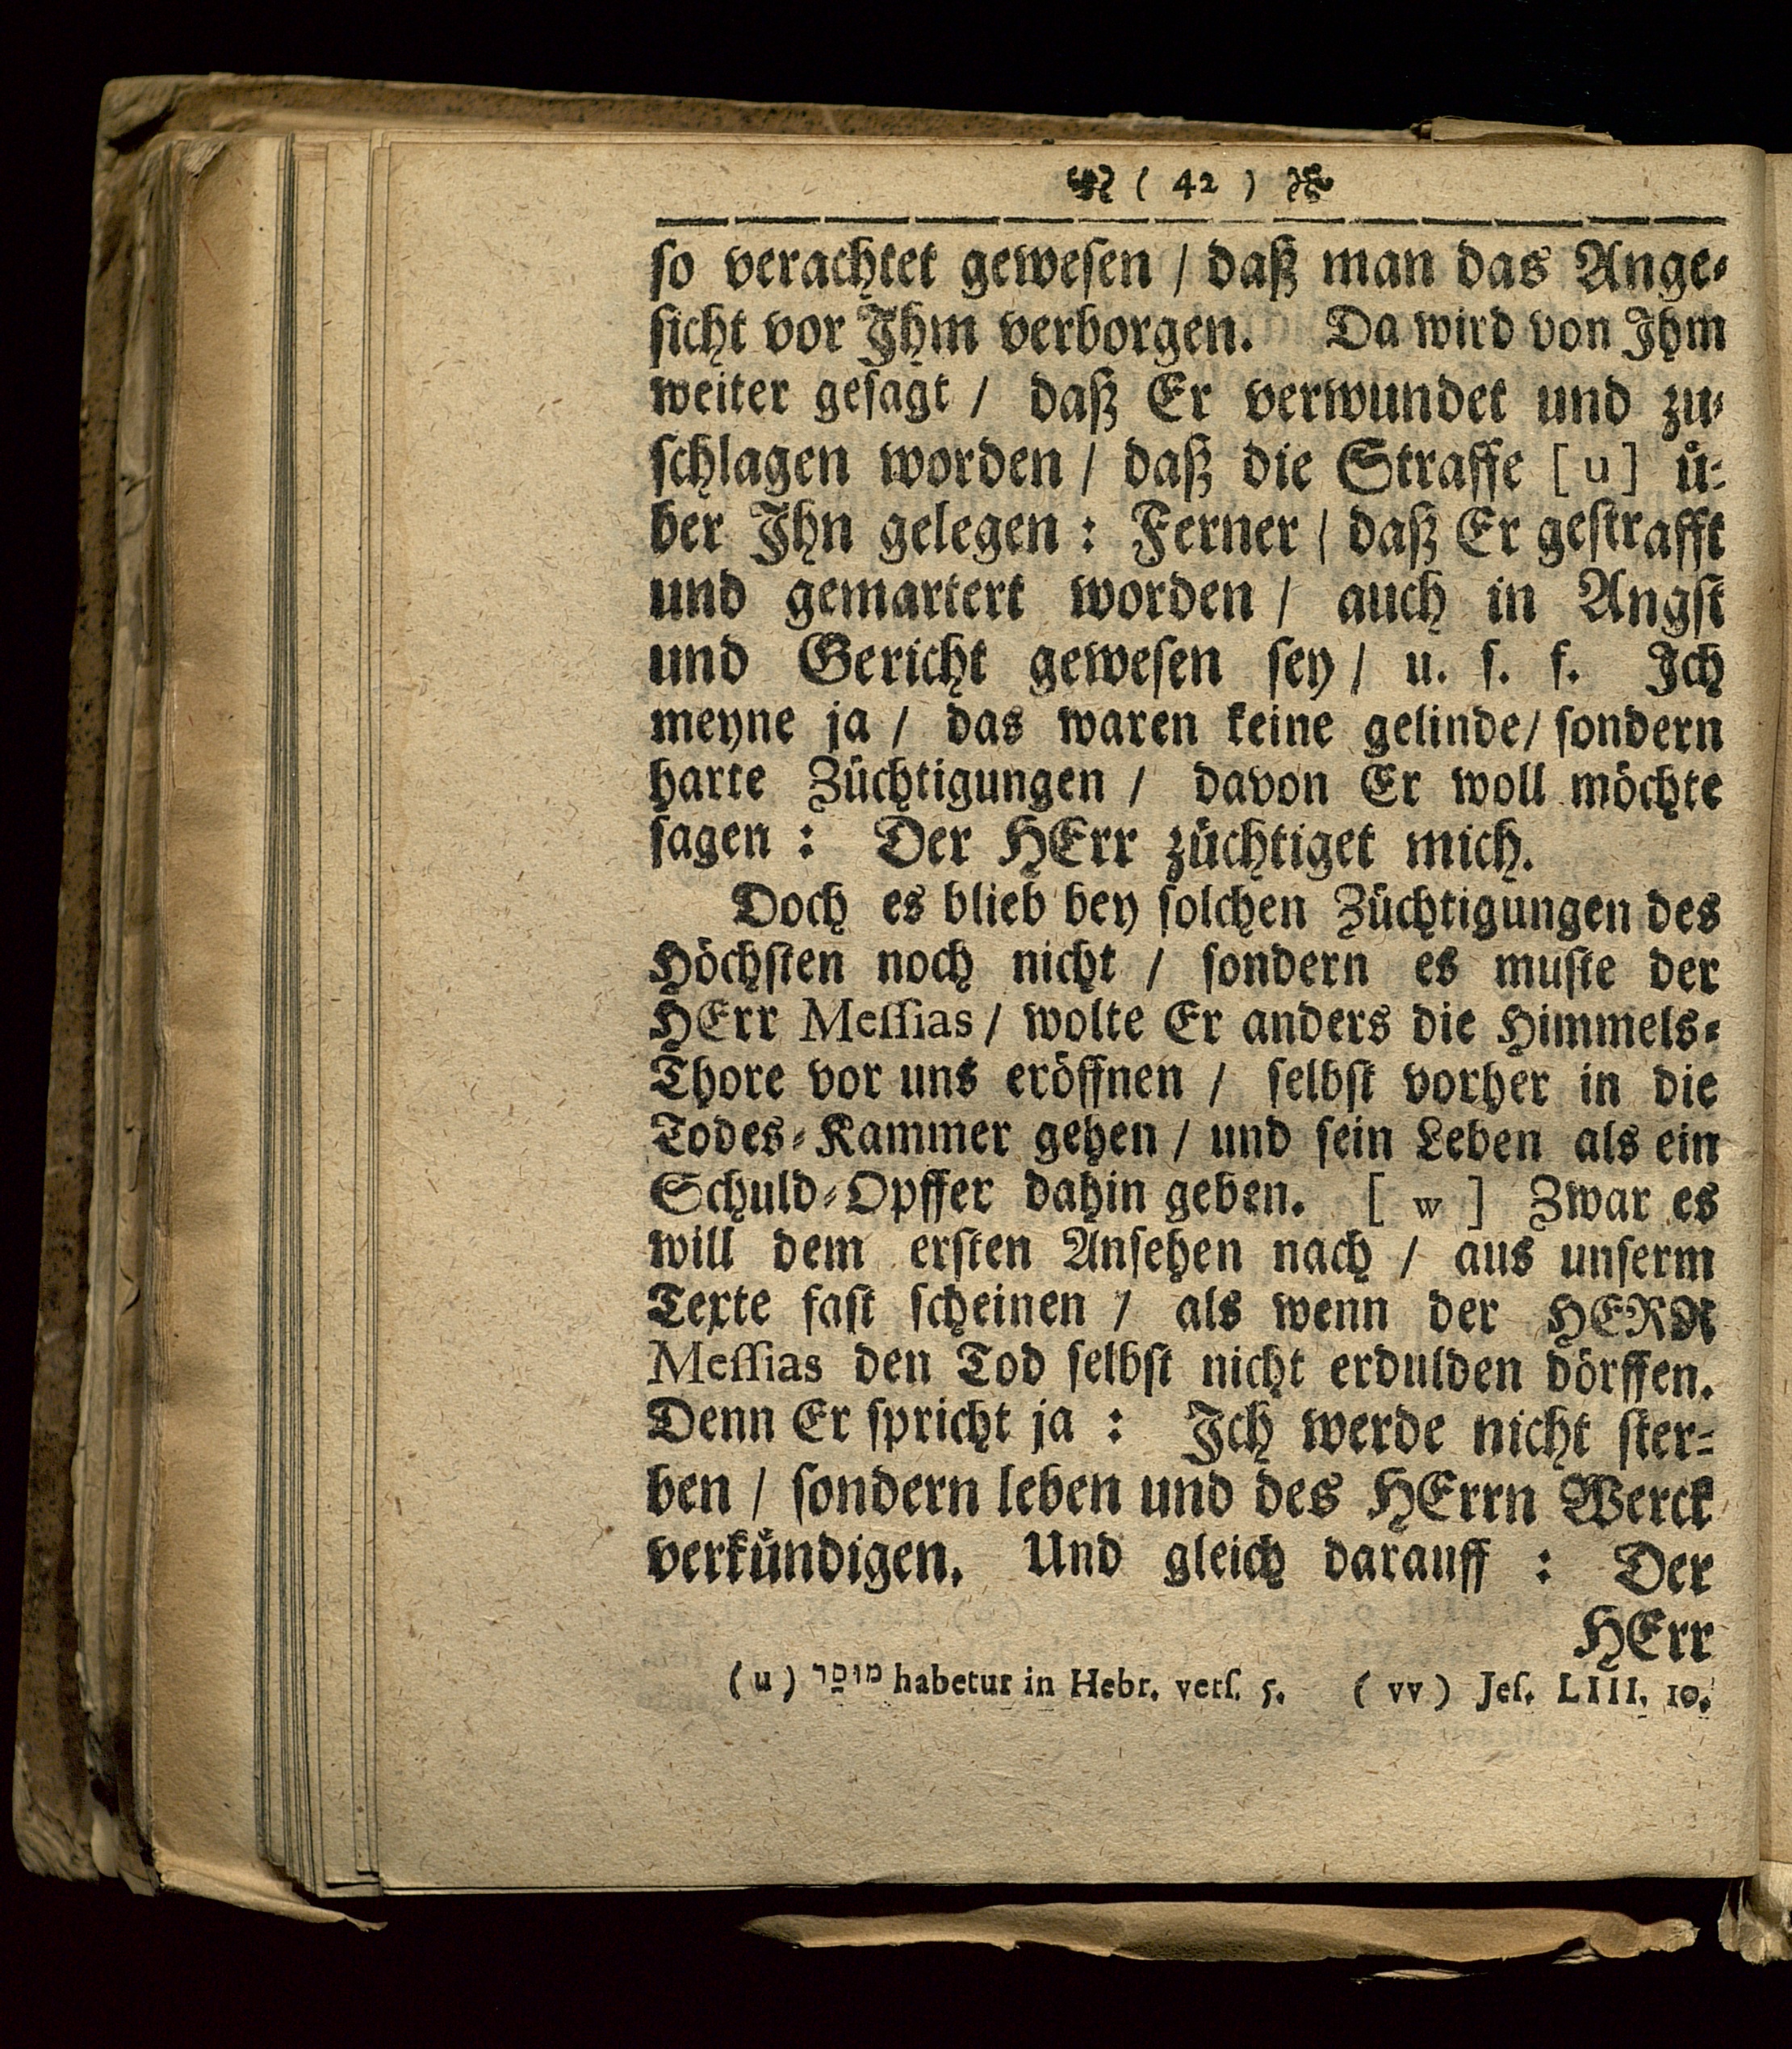 ( 42 )
so verachtet gewesen / daß man das Ange-
sicht vor Ihm verborgen. Da wird von Ihm
weiter gesagt / daß Er verwundet und zu-
schlagen worden / daß die Straffe [u] ü-
ber Ihn gelegen : Ferner / daß Er gestrafft
und gemartert worden / auch in Angst
und Gericht gewesen sey / u. s. f. Ich
meyne ja / das waren keine gelinde / sondern
harte Züchtigungen / davon Er woll möchte
sagen : Der HErr züchtiget mich.
Doch es blieb bey solchen Züchtigungen des
Höchsten noch nicht / sondern es muste der
HErr Messias / wolte Er anders die Himmels-
Thore vor uns eröffnen / selbst vorher in die
Todes-Kammer gehen / und sein Leben als ein
Schuld-Opffer dahin geben. [ w ] Zwar es
will dem ersten Ansehen nach / aus unserm
Texte fast scheinen / als wenn der HERR
Messias den Tod selbst nicht erdulden dörffen.
Denn Er spricht ja : Ich werde nicht ster-
ben / sondern leben und des HErrn Werck
verkündigen. Und gleich darauff : Der
HErr
(u) מוסר habetur in Hebr. vers. 5. (vv) Jes. LIII. 10.